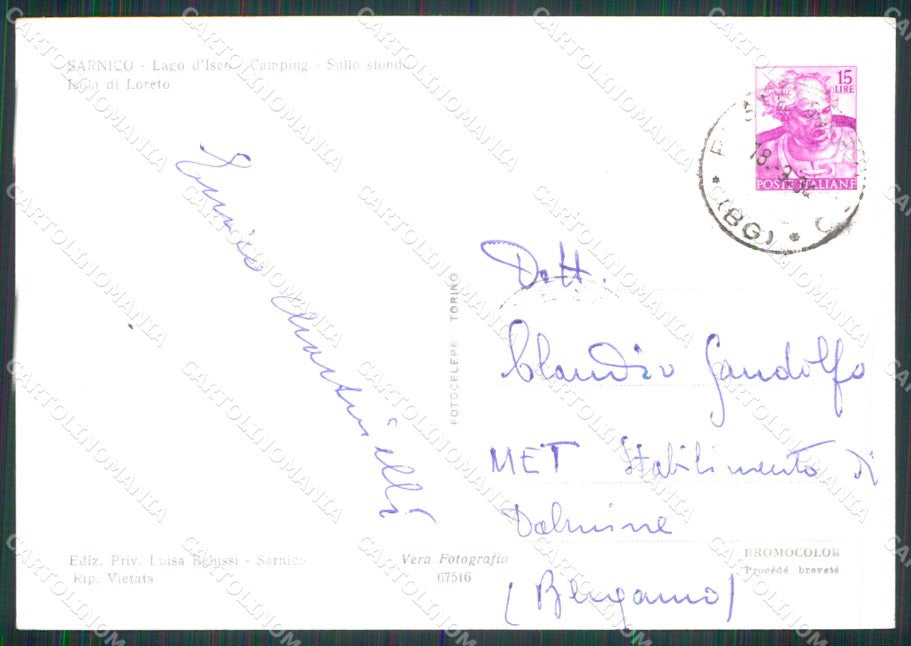 SARNICO - Lago d'Iseo - Camping - Sullo sfondo
Isola di Loreto
15
LIRE
POSTE ITALIANE
18.-9.
(BG)
Enrico Martinelli
Dott.
Claudio Gandolfo
MET Stabilimento di
Dalmine
(Bergamo)
FOTOCELERE TORINO
Ediz. Priv. Luisa Belussi - Sarnico
Rip. Vietata
Vera Fotografia
67516
BROMOCOLOR
Procédé breveté
CARTOLINOMANIA